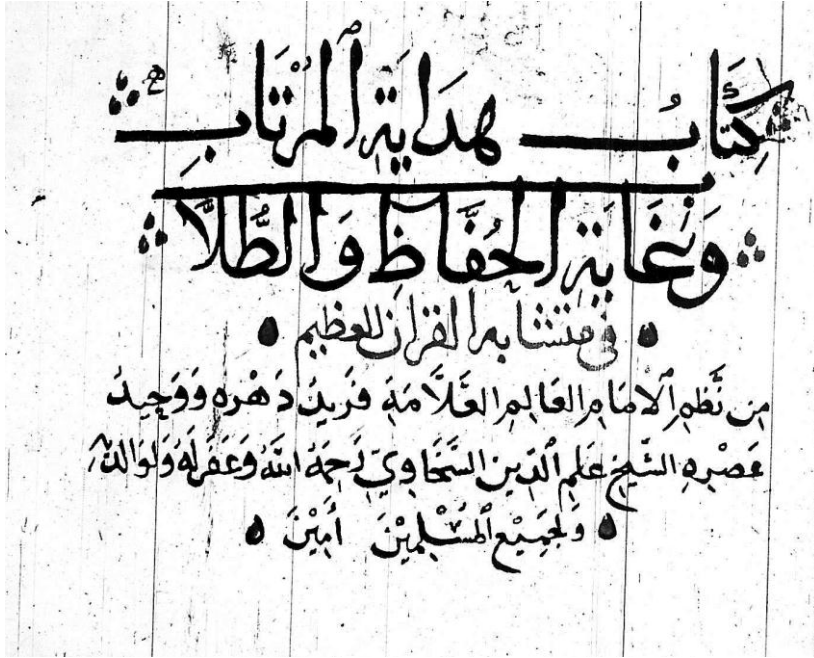 كِتَابُ هِدَايَةِ ٱلْمُرْتَابِ
وَغَايَةِ الحُفَّاظِ وَالطُّلَّابِ
فى متشابه القران العظيم
مِن نَّظْمِ ٱلامَامِ العَالِمِ العَلَّامَةِ فَرِيدَ دَهْرِه وَوَحِيدُ
عَصْرِهِ الشَّيْخِ عَلَمِ ٱلدِّينِ السَّخَاوِيِّ رَحِمَهُ اللَّهُ وَغَفَرَ لَهُ وَلِوَالِدَيْهِ
وَلِجَمِيْعِ ٱلْمُسْلِمِيْنَ أَمِيْنَ